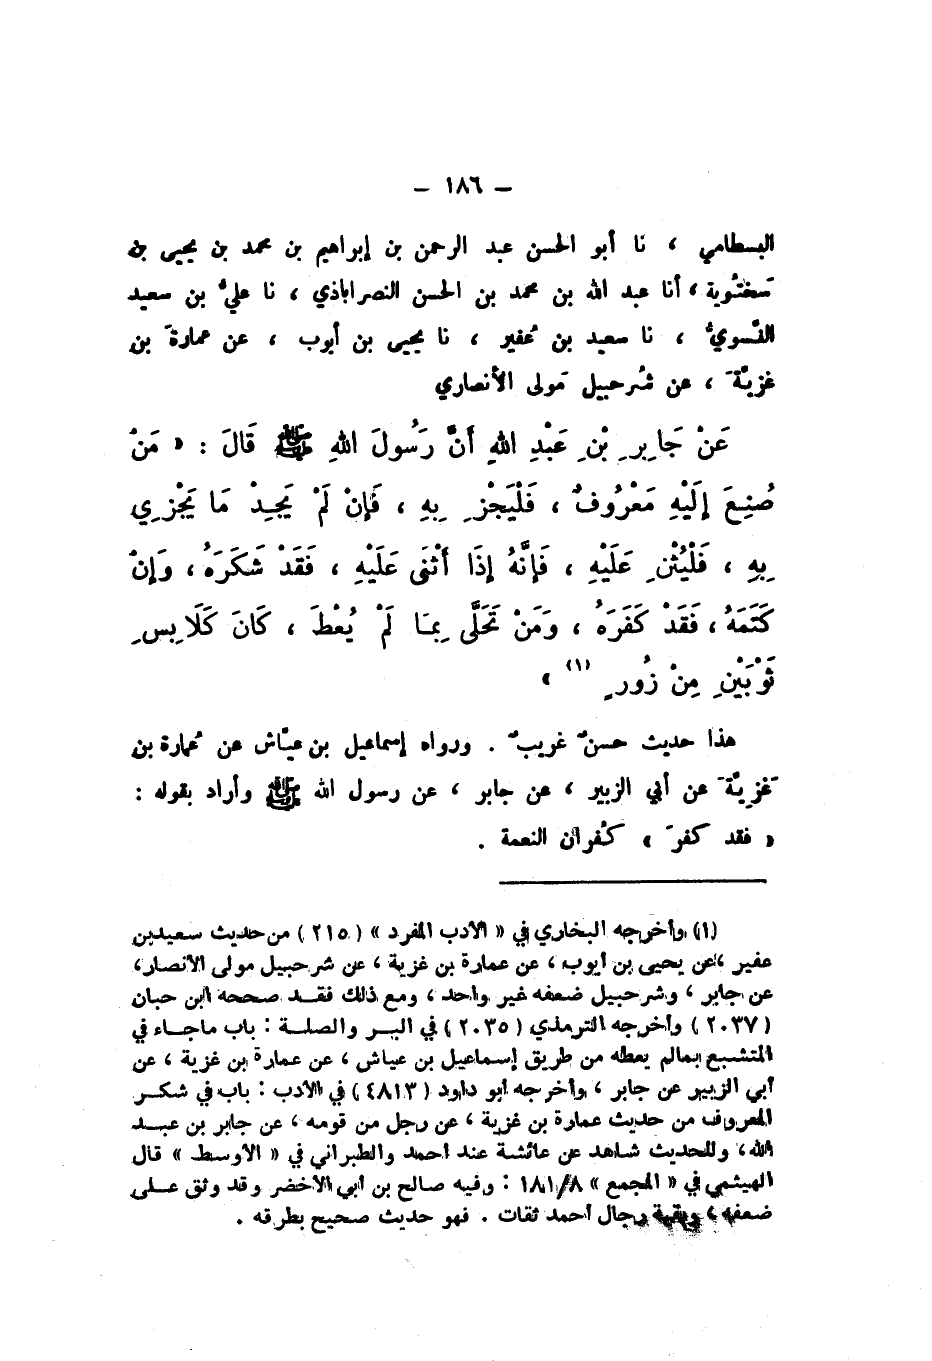 – ١٨٦ –
البسطامي ، نا أبو الحسن عبد الرحمن بن إبراهيم بن محمد بن يحيى بن
سختُوية ، أنا عبد الله بن محمد بن الحسن النصراباذي ، نا عليُّ بن سعيد
النَّسويُّ ، نا سعيد بن عُفير ، نا يحيى بن أيوب ، عن عمارةَ بن
غزيَّةَ ، عن شُرحبيل مَولى الأنصاري
عَنْ جَابِرِ بْنِ عَبْدِ اللهِ أَنَّ رَسُولَ اللهِ ﷺ قَالَ : « مَنْ
صُنِعَ إِلَيْهِ مَعْرُوفٌ ، فَلْيَجْزِ بِهِ ، فَإِنْ لَمْ يَجِدْ مَا يَجْزِي
بِهِ ، فَلْيُثْنِ عَلَيْهِ ، فَإِنَّهُ إِذَا أَثْنَى عَلَيْهِ ، فَقَدْ شَكَرَهُ ، وَإِنْ
كَتَمَهُ ، فَقَدْ كَفَرَهُ ، وَمَنْ تَحَلَّى بِمَا لَمْ يُعْطَ ، كَانَ كَلَابِسِ
ثَوْبَيْنِ مِنْ زُورٍ (١) »
هذا حديث حسنٌ غريبٌ . ورواه إسماعيل بن عيّاش عن عُمارة بن
غَزِيَّةَ عن أبي الزبير ، عن جابر ، عن رسول الله ﷺ وأراد بقوله :
« فقد كفرَ » كُفران النعمة .
(١) وأخرجه البخاري في « الأدب المفرد » ( ٢١٥ ) من حديث سعيد بن
عفير ، عن يحيى بن أيوب ، عن عمارة بن غزية ، عن شرحبيل مولى الأنصار ،
عن جابر ، وشرحبيل ضعفه غير واحد ، ومع ذلك فقد صححه ابن حبان
( ٢٠٣٧ ) وأخرجه الترمذي ( ٢٠٣٥ ) في البر والصلة : باب ماجاء في
المتشبع بمالم يعطه من طريق إسماعيل بن عياش ، عن عمارة بن غزية ، عن
أبي الزبير عن جابر ، وأخرجه أبو داود ( ٤٨١٣ ) في الأدب : باب في شكر
المعروف من حديث عمارة بن غزية ، عن رجل من قومه ، عن جابر بن عبد
الله ، وللحديث شاهد عن عائشة عند أحمد والطبراني في « الأوسط » قال
الهيثمي في « المجمع » ١٨١/٨ : وفيه صالح بن أبي الأخضر وقد وثق على
ضعفه ، وبقية رجال أحمد ثقات . فهو حديث صحيح بطرقه .